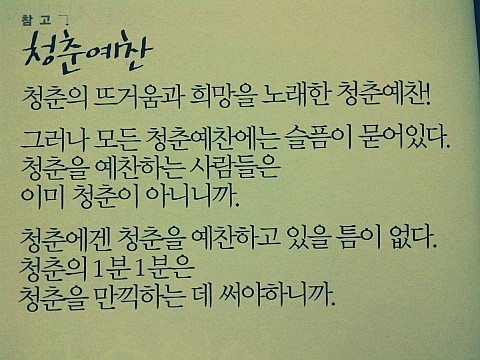 참고
청춘예찬
청춘의 뜨거움과 희망을 노래한 청춘예찬!
그러나 모든 청춘예찬에는 슬픔이 묻어있다.
청춘을 예찬하는 사람들은
이미 청춘이 아니니까.
청춘에겐 청춘을 예찬하고 있을 틈이 없다.
청춘의 1분 1분은
청춘을 만끽하는 데 써야하니까.